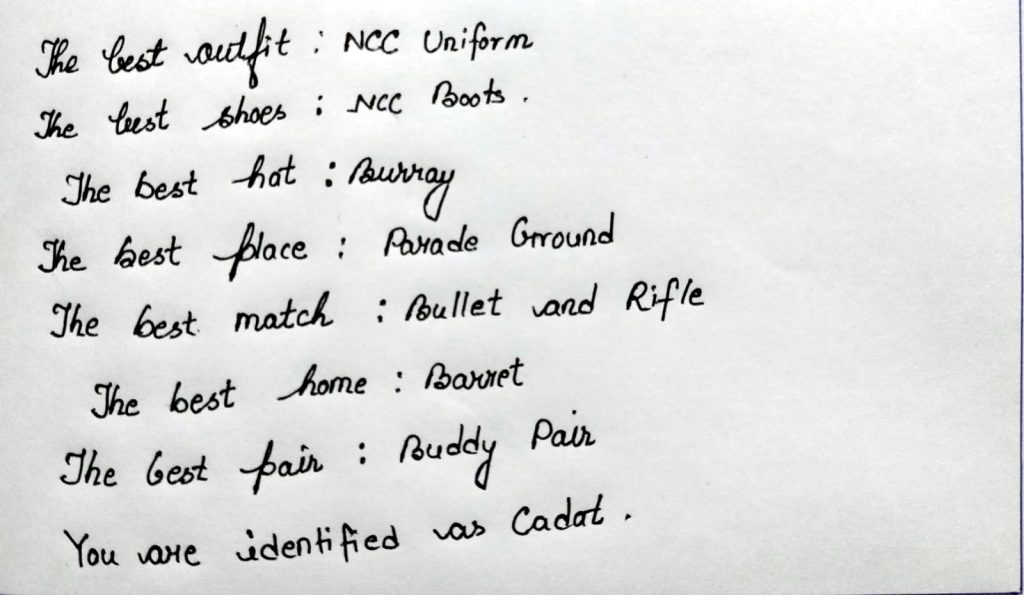 The best outfit : NCC Uniform
The best shoes : NCC Boots .
The best hat : Burray
The best place : Parade Ground
The best match : Bullet and Rifle
The best home : Barret
The best pair : Buddy Pair
You are identified as Cadat .